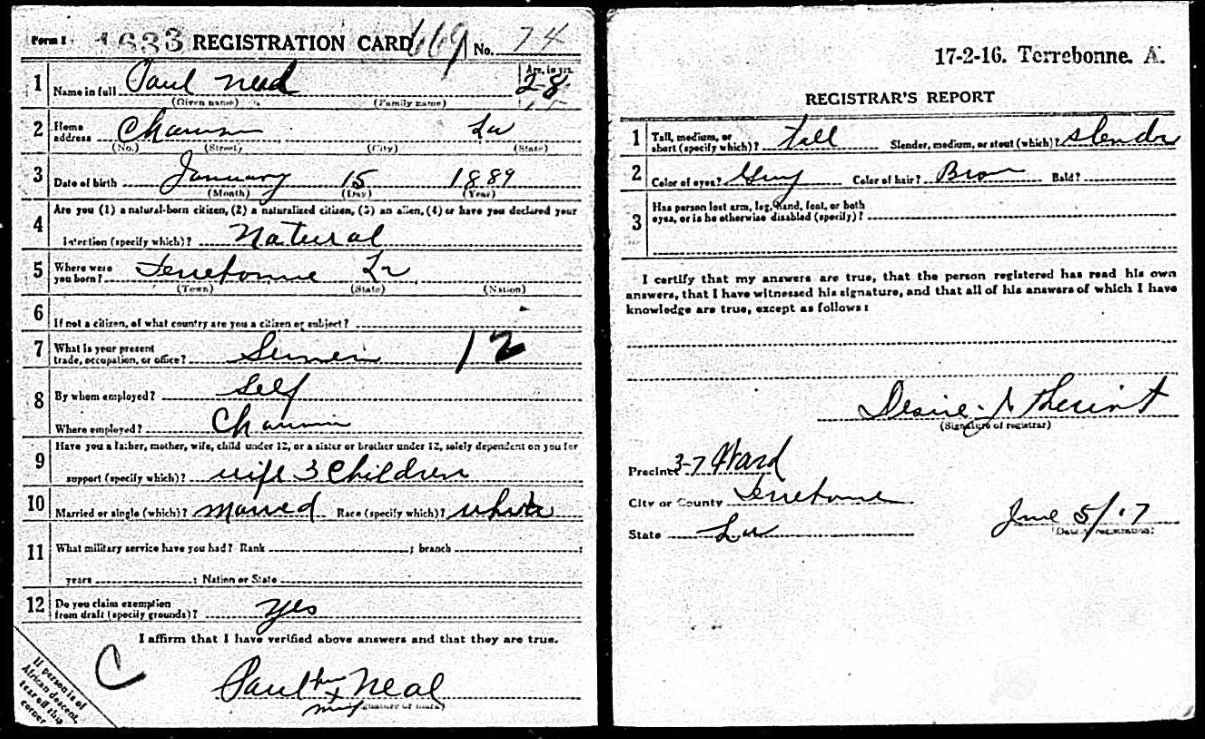 Form 1 1633 REGISTRATION CARD 669 No. 74
1 Name in full Paul Neal Age, in yrs. 28
(Given name) (Family name)
2 Home address Chauvin La
(No.) (Street) (City) (State)
3 Date of birth January 15 1889
(Month) (Day) (Year)
4 Are you (1) a natural-born citizen, (2) a naturalized citizen, (3) an alien, (4) or have you declared your
intention (specify which)? Natural
5 Where were you born? Terrebonne La
(Town) (State) (Nation)
6 If not a citizen, of what country are you a citizen or subject?
7 What is your present trade, occupation, or office? 12
8 By whom employed? Self
Where employed? Chauvin
9 Have you a father, mother, wife, child under 12, or a sister or brother under 12, solely dependent on you for
support (specify which)? wife 3 Children
10 Married or single (which)? Married Race (specify which)? white
11 What military service have you had? Rank ; branch ;
years ; Nation or State
12 Do you claim exemption from draft (specify grounds)? yes
I affirm that I have verified above answers and that they are true.
C
Paul his x Neal
mark
(Signature or mark)
If person is of
African descent,
tear off this
corner
17-2-16. Terrebonne. A.
REGISTRAR'S REPORT
1 Tall, medium, or short (specify which)? tall Slender, medium, or stout (which)? slender
2 Color of eyes? Grey Color of hair? Brown Bald?
3 Has person lost arm, leg, hand, foot, or both
eyes, or is he otherwise disabled (specify)?
I certify that my answers are true, that the person registered has read his own
answers, that I have witnessed his signature, and that all of his answers of which I have
knowledge are true, except as follows:
Desire A Theriot
(Signature of registrar)
Precinct 3-7 Ward
City or County Terrebonne
State La
June 5/17
(Date of registration)